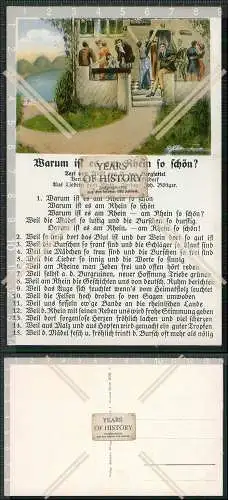 Warum ist es am Rhein so schön?
YEARS
OF HISTORY
1. Warum ist es am Rhein so schön
Warum ist es am Rhein so schön
Warum ist es am Rhein — am Rhein so schön?
Weil die Mädel so lustig und die Burschen so durstig
Darum ist es am Rhein, — am Rhein so schön!
2. Weil so heiß dort das Blut ist und der Wein dort so gut ist
3. Weil die Burschen so frank sind und die Schläger so blank sind
4. Weil die Mädchen so treu sind und die Burschen so frei sind
5. Weil die Lieder so innig und die Worte so sinnig
6. Weil am Rheine man Jeden frei und offen hört reden
7. Weil selbst a. d. Burgruinen, neuer Hoffnung Triebe grünen
8. Weil am Rhein die Geschichten uns von deutsch. Ruhm berichten
9. Weil das Auge sich feuchtet wenn's vom Heimatstolz leuchtet
10. Weil die Felsen hoch droben so von Sagen umwoben
11. Weil uns fesseln ew'ge Bande an die rheinischen Lande
12. Weil b. Rhein mit seinen Reben uns wird frohe Stimmung geben
13. Weil dort sorgenlose Herzen fröhlich lachen und viel scherzen
14. Weil aus Malz und aus Hopfen wird gemacht ein guter Tropfen
15. Weil d. Mädel fesch u. fröhlich trinkt d. Bursch oft mehr als nötig
YEARS
OF HISTORY